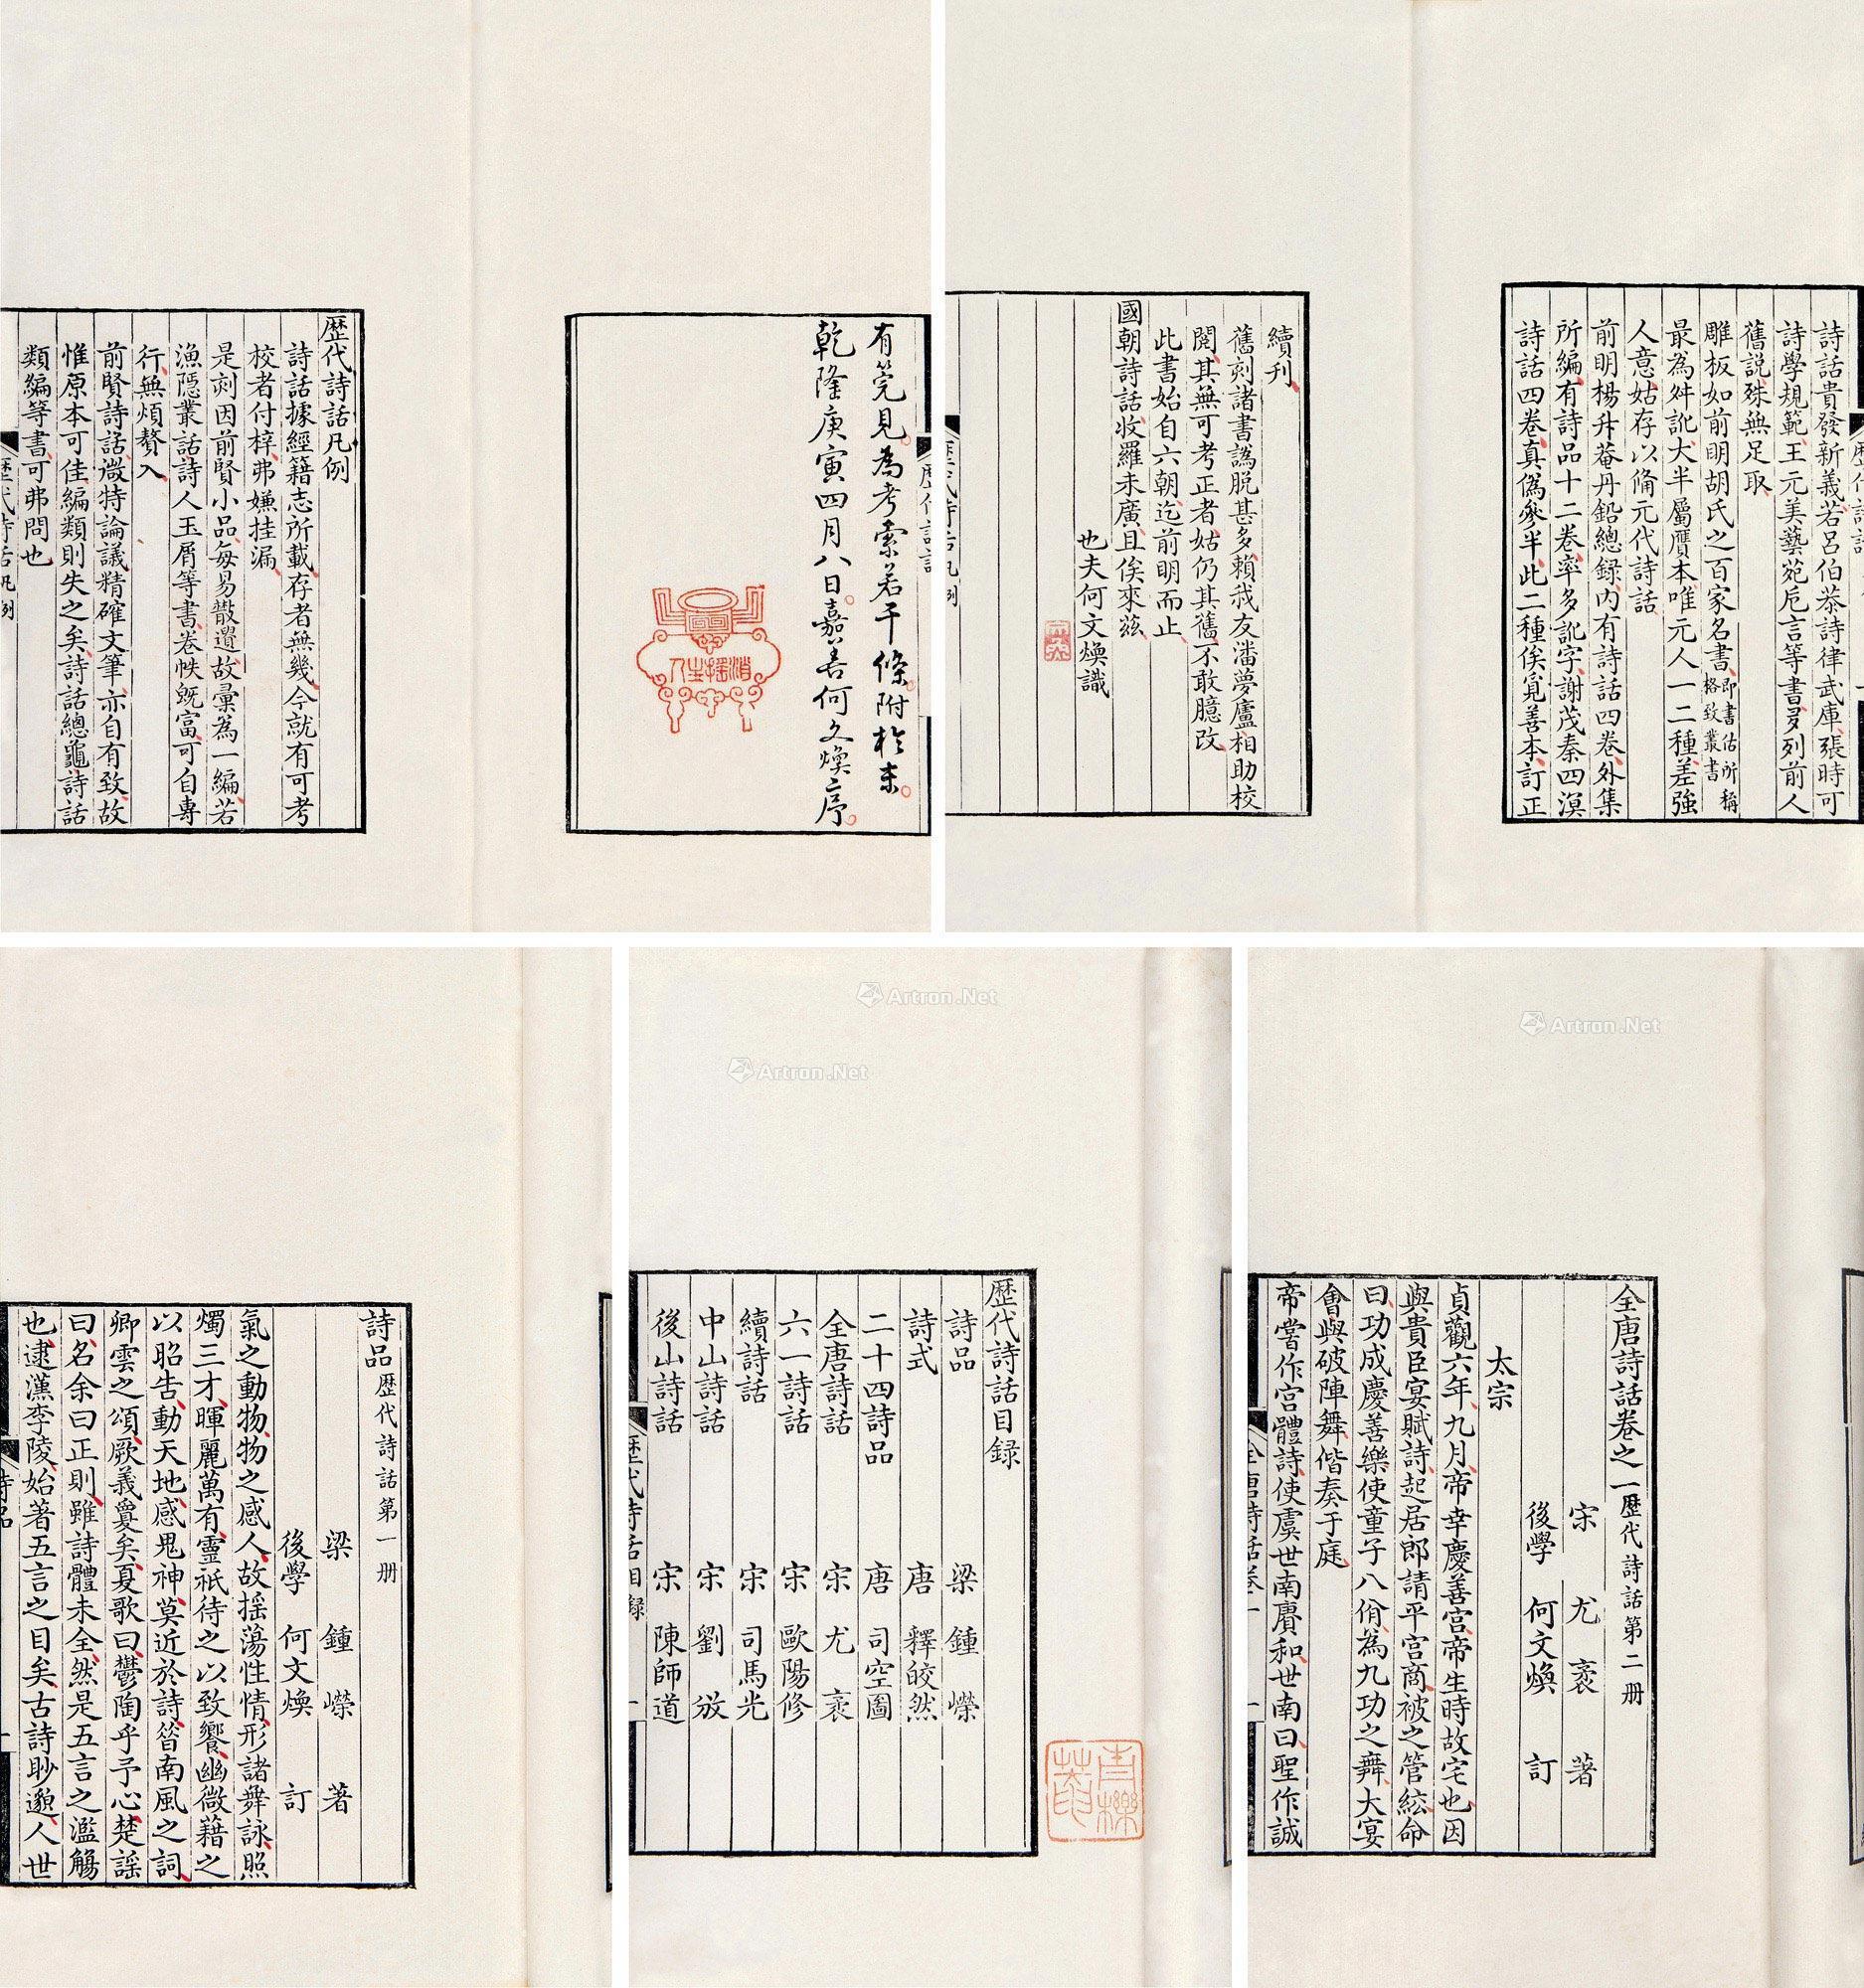 有筦見為考索若干條附於末
乾隆庚寅四月八日嘉善何文煥序
歷代詩話凡例
詩話據經籍志所載存者無幾今就有可考
校者付梓弗嫌挂漏
是刻因前賢小品每易散遺故彙為一編若
漁隱叢話詩人玉屑等書卷帙既富可自專
行無煩贅入
前賢詩話微特論議精確文筆亦自有致故
惟原本可佳編類則失之矣詩話總龜詩話
類編等書可弗問也
歷代詩話凡例
詩話貴發新義若呂伯恭詩律武庫張時可
詩學規範王元美藝苑卮言等書多列前人
舊說殊無足取
雕板如前明胡氏之百家名書即書估所稱格致叢書
最為舛訛大半屬贋本唯元人一二種差強
人意姑存以備元代詩話
前明楊升菴丹鉛總録內有詩話四卷外集
所編有詩品十二卷率多訛字謝茂秦四溟
詩話四卷真偽參半此二種俟覓善本訂正
續刊
舊刻諸書譌脫甚多賴我友潘夢廬相助校
閱其無可考正者姑仍其舊不敢臆改
此書始自六朝迄前明而止
國朝詩話收羅未廣且俟來茲
也夫何文煥識
詩品歷代詩話第一册
梁 鍾嶸 著
後學 何文煥 訂
氣之動物物之感人故揺蕩性情形諸舞詠照
燭三才暉麗萬有靈祇待之以致饗幽微藉之
以昭告動天地感鬼神莫近於詩昔南風之詞
卿雲之頌厥義夐矣夏歌曰鬱陶乎予心楚謡
曰名余曰正則雖詩體未全然是五言之濫觴
也逮漢李陵始著五言之目矣古詩眇邈人世
歷代詩話目録
詩品 梁 鍾嶸
詩式 唐 釋皎然
二十四詩品 唐 司空圖
全唐詩話 宋 尤袤
六一詩話 宋 歐陽修
續詩話 宋 司馬光
中山詩話 宋 劉攽
後山詩話 宋 陳師道
歷代詩話目録 一
全唐詩話卷之一歷代詩話第二册
宋 尤袤 著
後學 何文煥 訂
太宗
貞觀六年九月帝幸慶善宫帝生時故宅也因
與貴臣宴賦詩起居郎請平宫商被之管絃命
曰功成慶善樂使童子八佾為九功之舞大宴
會與破陣舞偕奏于庭
帝嘗作宫體詩使虞世南賡和世南曰聖作誠
全唐詩話卷一 一
Artron.Net
Artron.Net
Artron.Net